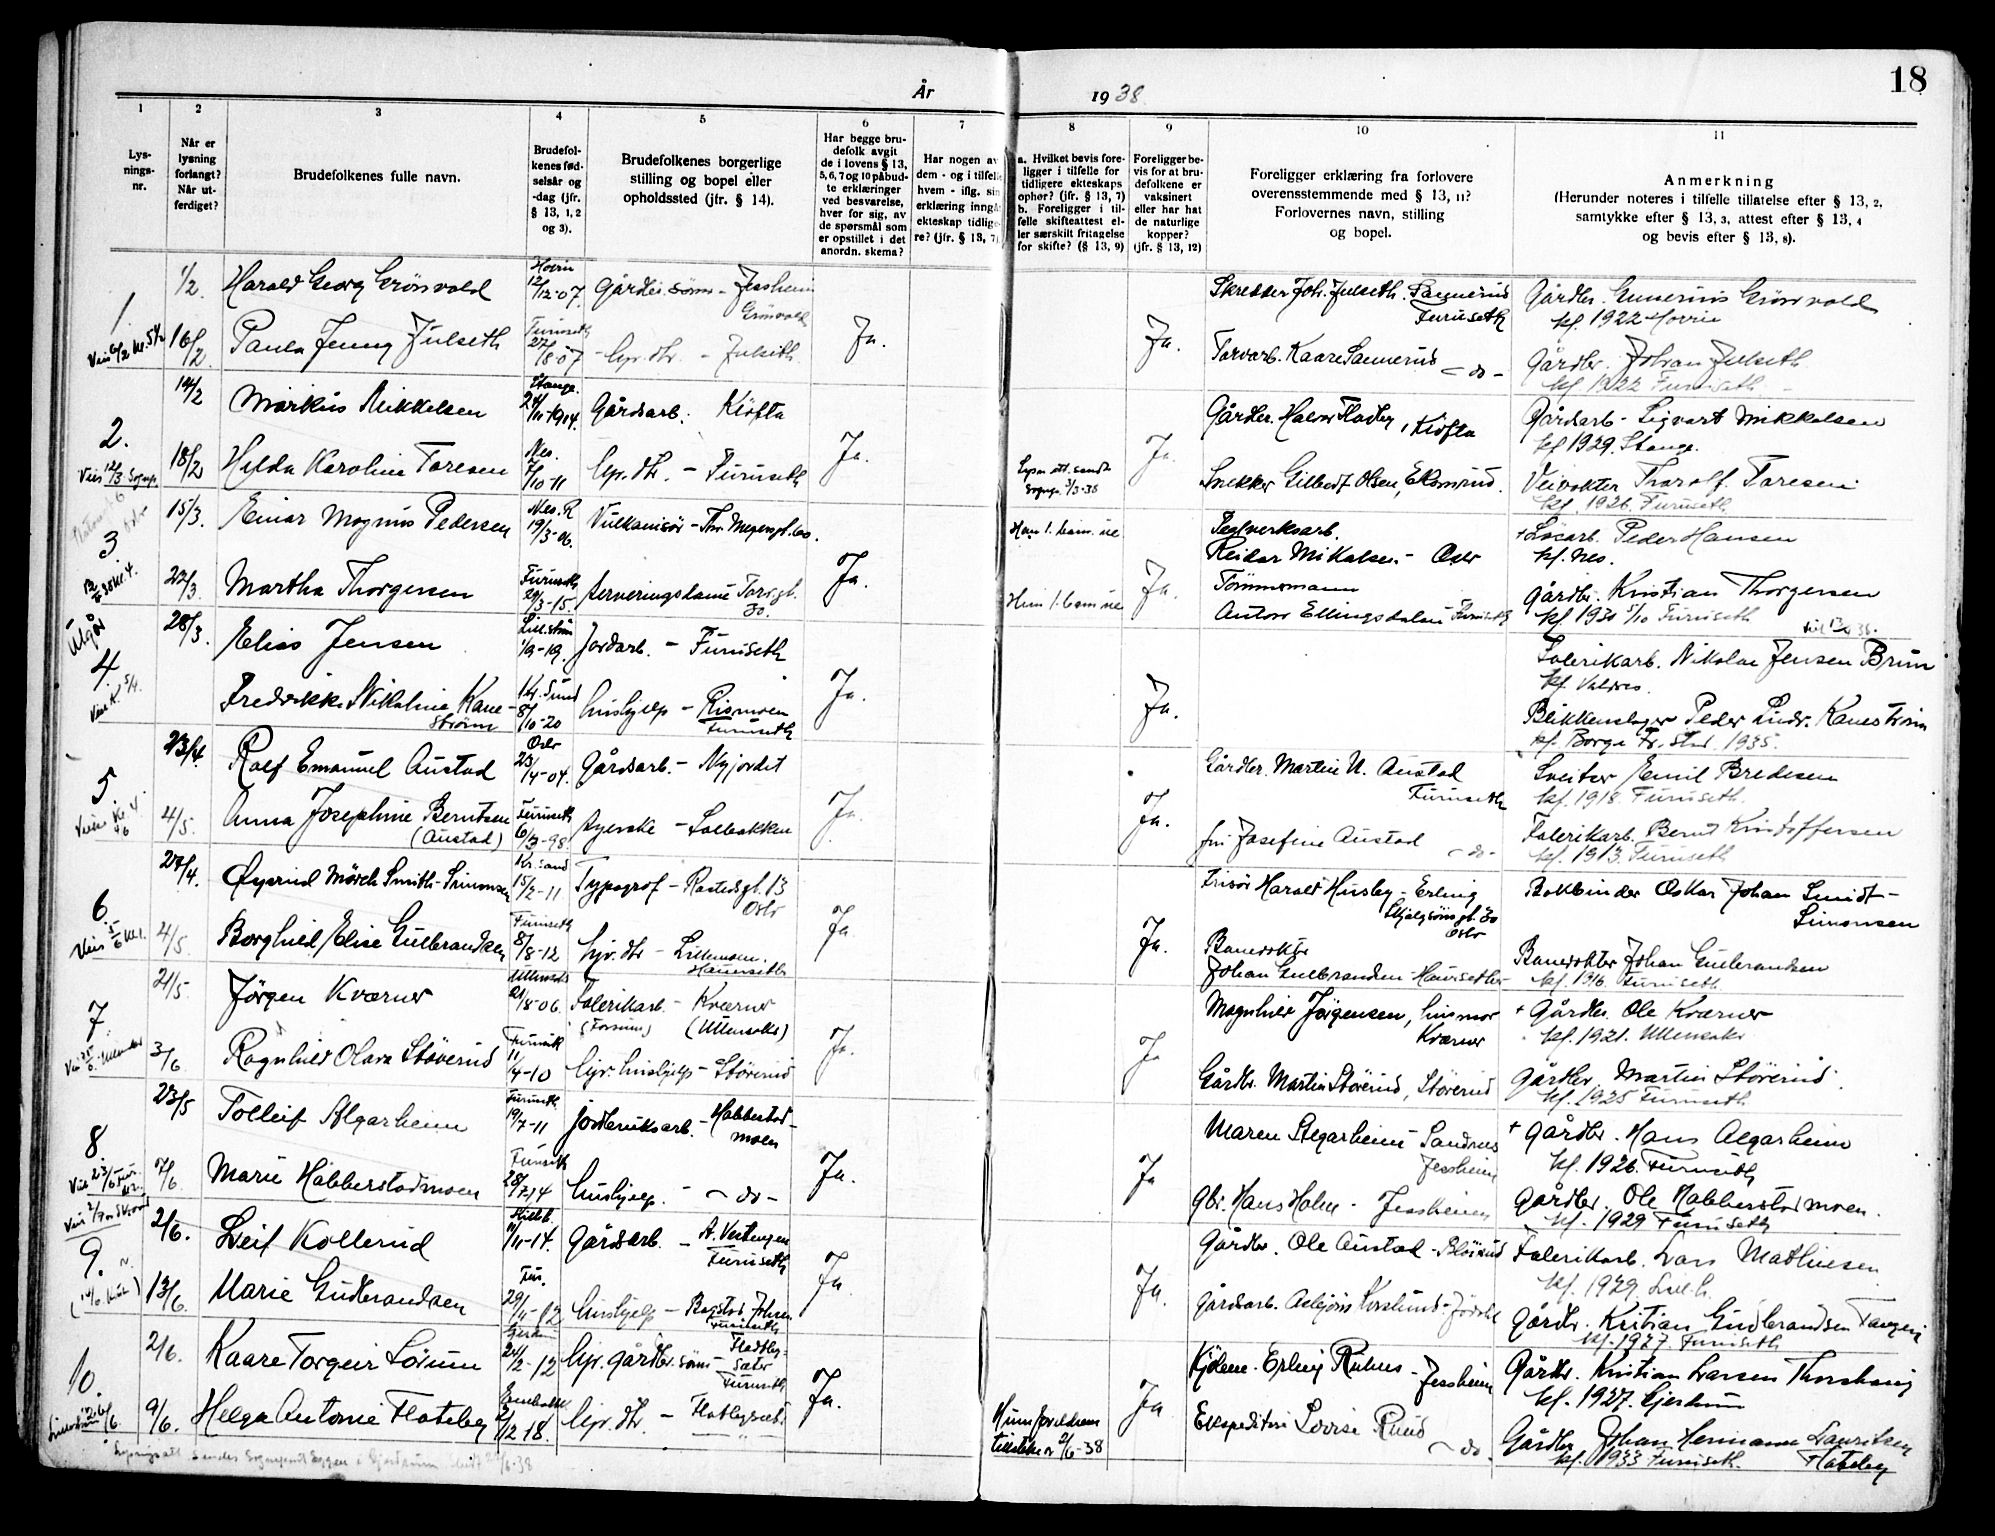 18
År
1938
1
2
3
4
5
6
7
8
9
10
11
Lys-
nings-
nr.
Når er
lysning
forlangt?
Når ut-
ferdiget?
Brudefolkenes fulle navn.
Brudefol-
kenes fød-
selsår og
-dag (jfr.
§ 13, 1, 2
og 3).
Brudefolkenes borgerlige
stilling og bopel eller
opholdssted (jfr. § 14).
Har begge bru-
defolk avgit
de i lovens § 13,
5, 6, 7 og 10 påbud-
te erklæringer
ved besvarelse,
hver for sig, av
de spørsmål som
er opstillet i det
anordn. skema?
Har nogen av
dem - og i tilfelle
hvem - iflg. sin
erklæring inngå
ekteskap tidlige-
re? (jfr. § 13, 7)
a. Hvilket bevis fore-
ligger i tilfelle for
tidligere ekteskaps
ophør? (jfr. § 13, 7)
b. Foreligger i til-
felle skifteattest el-
ler særskilt fritagelse
for skifte? (§ 13, 9)
Foreligger be-
vis for at bru-
defolkene er
vaksinert
eller har hat
de naturlige
kopper?
(jfr. § 13, 12)
Foreligger erklæring fra forlovere
overensstemmende med § 13, 11?
Forlovernes navn, stilling
og bopel.
Anmerkning
(Herunder noteres i tilfelle tillatelse efter § 13, 2,
samtykke efter § 13, 3, attest efter § 13, 4
og bevis efter § 13, 8).
1.
1/2. Harald Georg Grönvold
Hovin
12/12-07. Gårdbr. sönn - Jessheim
Grönvold
Skredder Joh. Julseth. Sannerud
Furuseth
Gårdbr. Gunerius Grönvold
kf. 1922 Hovin
16/2 Paula Jenny Julseth
Furuseth
27/8-07 - hjr. dtr. - Julseth
Ja.
Ja.
Torvarb. Kaare Sannerud - do -
Gårdbr. Johan Julseth.
kf. 1922 Furuseth
2.
14/2 Markus Mikkelsen
Stange.
24/11-1914. Gårdsarb. Klöfta
Gårdbr. Halvor Fladby, Klöfta
Gårdsarb - Sigvart Mikkelsen
kf 1929. Stange.
18/2 Hilda Karoline Toresen
Nes.
7/10-11 hjr. dtr. - Furuseth
Ja.
Ja.
Snekker Gilbert Olsen, Ekornrud.
Veivokter Thorolf Toresen
kf. 1926. Furuseth
3
15/3. Einar Magnus Pedersen
Nes. R
19/3-06. Vulkanisör - Thv. Meyersgt. 60.
Reidar Mikalsen. - Oslo
+ Løsarb. Peder Hansen
kf. Nes.
22/3. Martha Thorgersen
Furuseth
29/3-15. Serveringsdame Torvgt.
Ja.
Ja.
Tömmermann
Anton Ellingsdalen Furuseth
Gårdbr. Kristian Thorgersen
kf. 1930 5/10 Furuseth
Utgår
4
28/3. Elias Jensen
Lill.ström
1/9-19. Jordarb. - Furuseth
Fabrikarb. Nikolai Jensen Brun
kf. Valdres.
Fredrikke Nikoline Kane-
ström
Kr. Sund
8/10-20 hushjelp - Rismoen
Furuseth
Ja.
Ja.
Blikkenslager Peder Lindr. Kaneström
kf. Borge Fr.stad. 1935.
5
23/4. Rolf Emanuel Austad
Oslo
23/4-04. Gårdsarb. - Nyjordet
Gårdbr. Martin N. Austad
Furuseth
Sveitser Emil Bredesen
kf. 1918. Furuseth.
4/5. Anna Josephine Berntsen
(Austad)
Furuseth
6/3-98. Syerske - Solbakken
Ja.
Ja.
fru Josefine Austad - do -
Fabrikarb. Bernt Kristoffersen
kf. 1913. Furuseth
6.
27/4. Øyvind Mörch Smith-Simonsen
Kr. sand
15/2-11 Typograf - Rostedsgt. 13
Oslo
Frisör Harald Husby - Erling
Skjalgsönsgt. 30
Oslo
Bokbinder Oskar Johan Smidt-
Simonsen
4/5. Borghild Elise Gulbrandsen
Furuseth
8/8-12 hjr. dtr. - Lillemoen.
Hauerseth
Ja
Ja.
Banevokter
Johan Gulbrandsen Hauerseter
Banevokter Johan Gulbrandsen
kf. 1916. Furuseth.
7
21/5. Jörgen Kværner
Ullensaker
21/8-06. Fabrikarb. - Kværner
(Ullensaker)
Magnhild Jörgensen, husmor
Kværner
+ Gårdbr. Ole Kværner
kf. 1921. Ullensaker
3/6. Ragnhild Olava Støverud
Furuseth
11/4-10 hjv. hushjelp - Støverud
Ja.
Ja
Gårdbr. Martin Støverud, Støverud
Gårdbr. Martin Støverud.
kf. 1925 Furuseth.
8
23/5 Tolleif Algarheim
Furuseth
19/7-11 Jordbruksarb. - Habberstad-
moen
Maren Algarheim - Sandnes
Jessheim
+ Gårdbr. Hans Algarheim
kf. 1926. Furuseth
7/6. Marie Habberstadmoen
Furuseth
28/7-14 hushjelp. - do -
Ja.
Ja
Gbr. Hans Holm - Jessheim
Gårdbr. Ole Habberstadmoen.
kf. 1929 Furuseth
9.
2/6. Leif Kollerud
11/11-14. Gårdsarb. - A. Vestengen
Furuseth
Gårdbr. Ole Austad -
Fabrikarb. Lars Mathisen
kf. 1929
13/6. Marie Gudbrandsen
Fur.
29/11-12 hushjelp -
Furuseth
Ja.
Ja.
Gårdbr. Kristian Gudbrandsen Tangen
kf. 1927. Furuseth
10.
2/6. Kaare Torgeir Sörum
Gjerdrum
24/2-12 hjv. gårdbr. sönn - Fladby-
sæter
Furuseth
Erling Ruhus - Jessheim
Gårdbr. Kristian Larsen Thorshaug
kf. 1927. Gjerdrum
9/6. Helga Antonie Flateby
Enebakk
2/12 18. hjv. dtr. - Flatbysæt.
Ja.
Ja
Hun foreldrenes
tillatelse av 2/6-38
Ekspeditrise Lovise Ruud - do.
Gårdbr. Johan Hermann Lauritsen
kf. 1933 Furuseth. Flateby